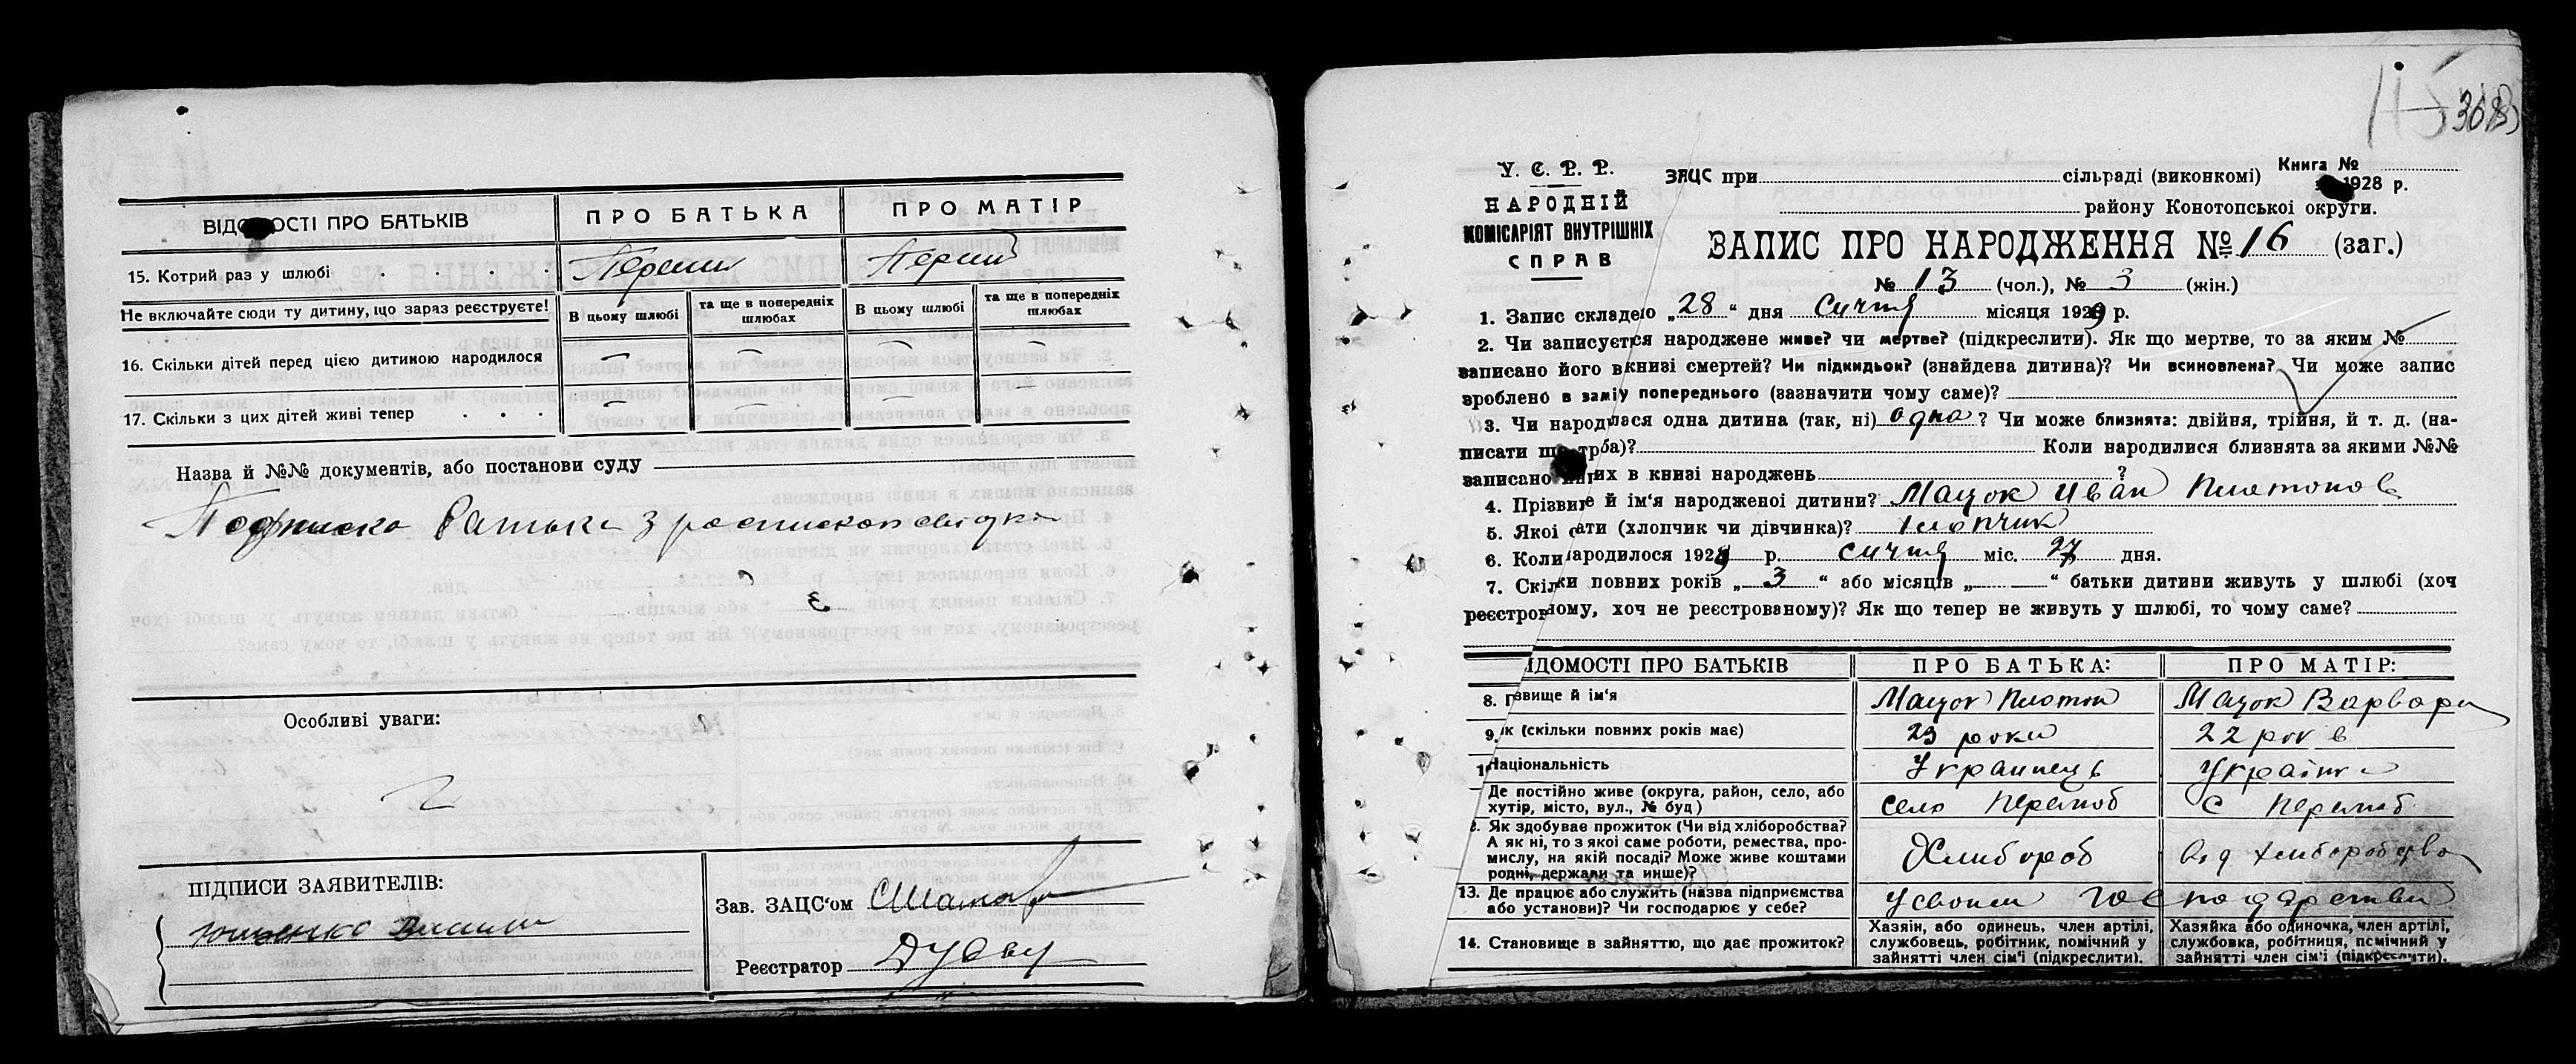 ВІДОМОСТІ ПРО БАТЬКІВ
ПРО БАТЬКА
ПРО МАТІР
15. Котрий раз у шлюбі
Не включайте сюди ту дитину, що зараз реєструєте!
В цьому шлюбі
та ще в попередніх шлюбах
В цьому шлюбі
та ще в попередніх шлюбах
16. Скільки дітей перед цією дитиною народилося — — — —
17. Скільки з цих дітей живі тепер — — — —
Назва й №№ документів, або постанови суду
батька з
Особливі уваги:
ПІДПИСИ ЗАЯВИТЕЛІВ:
Зав. ЗАЦС'ом
Реєстратор
115
У. С. Р. Р.
НАРОДНІЙ
КОМІСАРІЯТ ВНУТРІШНІХ
СПРАВ
Книга №
ЗАЦС при сільраді (виконкомі) 1928 р.
району Конотопської округи.
ЗАПИС ПРО НАРОДЖЕННЯ № 16 (заг.)
№ 13 (чол.), № 3 (жін.)
1. Запис складено „28“ дня Січня місяця 1929 р.
2. Чи записується народжене живе? чи мертве? (підкреслити). Як що мертве, то за яким №
записано його в книзі смертей? Чи підкидьок? (знайдена дитина)? Чи всиновлена? Чи може запис
зроблено в заміу попереднього (зазначити чому саме)?
3. Чи народилася одна дитина (так, ні) одна ? Чи може близнята: двійня, трійня, й т. д. (на-
писати що трба)? Коли народилися близнята за якими №№
записано инших в книзі народжень ?
4. Прізвище й ім'я народженоі дитини? Мацок Иван Платонов
5. Якоі стати (хлопчик чи дівчинка)? хлопчик
6. Коли народилося 1929 р. січня міс. 27 дня.
7. Скільки повних років „ 3 “ або місяців „ — “ батьки дитини живуть у шлюбі (хоч
реєстрованому, хоч не реєстрованому)? Як що тепер не живуть у шлюбі, то чому саме?
ВІДОМОСТІ ПРО БАТЬКІВ
ПРО БАТЬКА:
ПРО МАТІР:
8. Прізвище й ім'я Мацок Платон Мацок Варвара
9. Вік (скільки повних років має) 23 роки 22 рок в
Національність Украинець Україна
Де постійно живе (округа, район, село, або
хутір, місто, вул., № буд)
село с
Як здобуває прожиток (Чи від хліборобства?
А як ні, то з якої саме роботи, ремества, про-
мислу, на якій посаді? Може живе коштами
родні, держали та инше)?
Хлибороб
від хлиборобства
13. Де працює або служить (назва підприємства
або установи)? Чи господарює у себе?
у своим господарстви
14. Становище в зайняттю, що дає прожиток?
Хазяін, або одинець, член артілі,
службовець, робітник, помічний у
зайнятті член сім'і (підкреслити).
Хазяйка або одиночка, член артілі,
службовка, робітниця, псмічний у
зайнятті член сім'і (підкреслити).